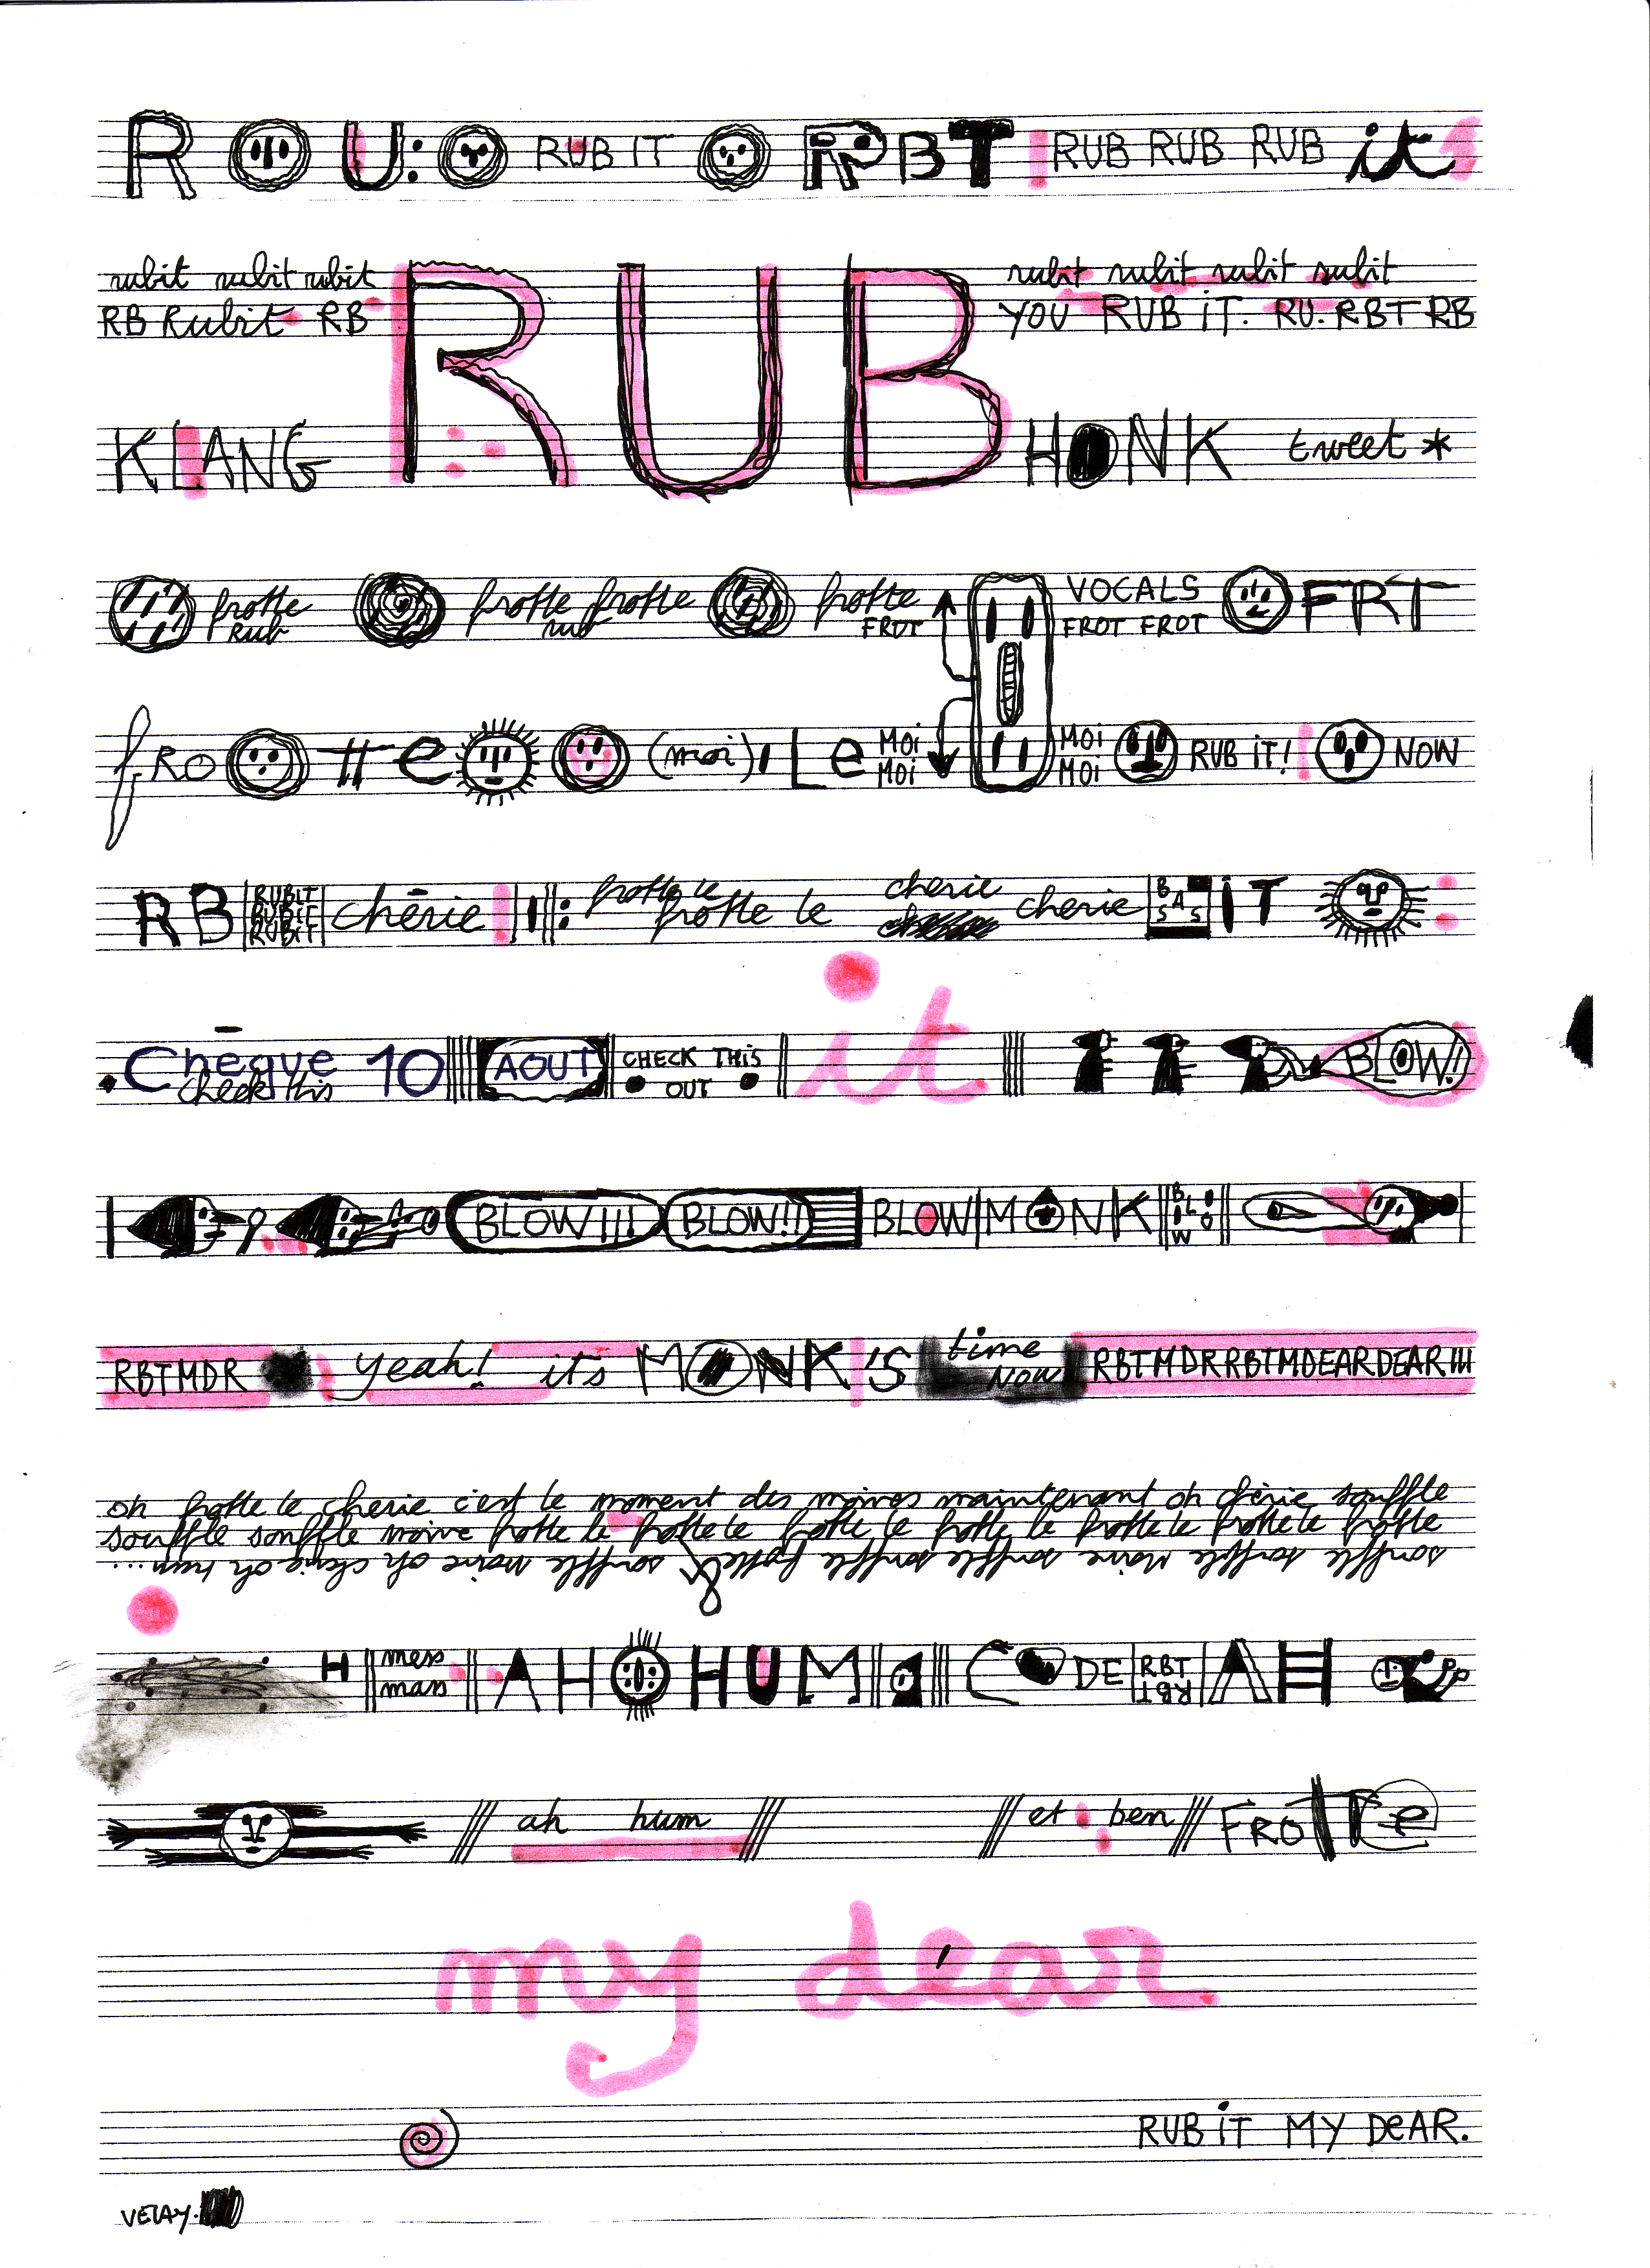 R U: RUB IT RBT RUB RUB RUB it
rubit rubit rubit RUB rubit rubit rubit rubit
RB Rubit RB YOU RUB iT. RU. RBT RB
KLANG HONK tweet *
frotte frotte frotte frotte VOCALS FRT
Rub rub FROT FROT FROT
fRO tte (moi) Le MOi MOi RUB iT! NOW
MOi MOi
RB RUBiT RUBiT RUBiT chērie frotte le frotte le cherie cherie BASS iT
Chēque 10 AOUT CHECK THiS OUT it BLOW!!
check this
BLOW!!! BLOW!! BLOW MONK BLOW
RBTMDR yeah! its MONK'S time NOW RBTMDRRBTMDEARDEAR!!!
oh frotte le cherie c'est le moment des moines maintenant oh chérie souffle
souffle souffle moine frotte le frotte le frotte le frotte le frotte le frotte le frotte
souffle souffle moine souffle souffle frotte souffle moine oh cherie oh hum ....
H mess mass AH OHUM CODE RBT RBT AH
ah hum et ben FROTTe
my dear
RUB iT MY DeAR.
VELAY.